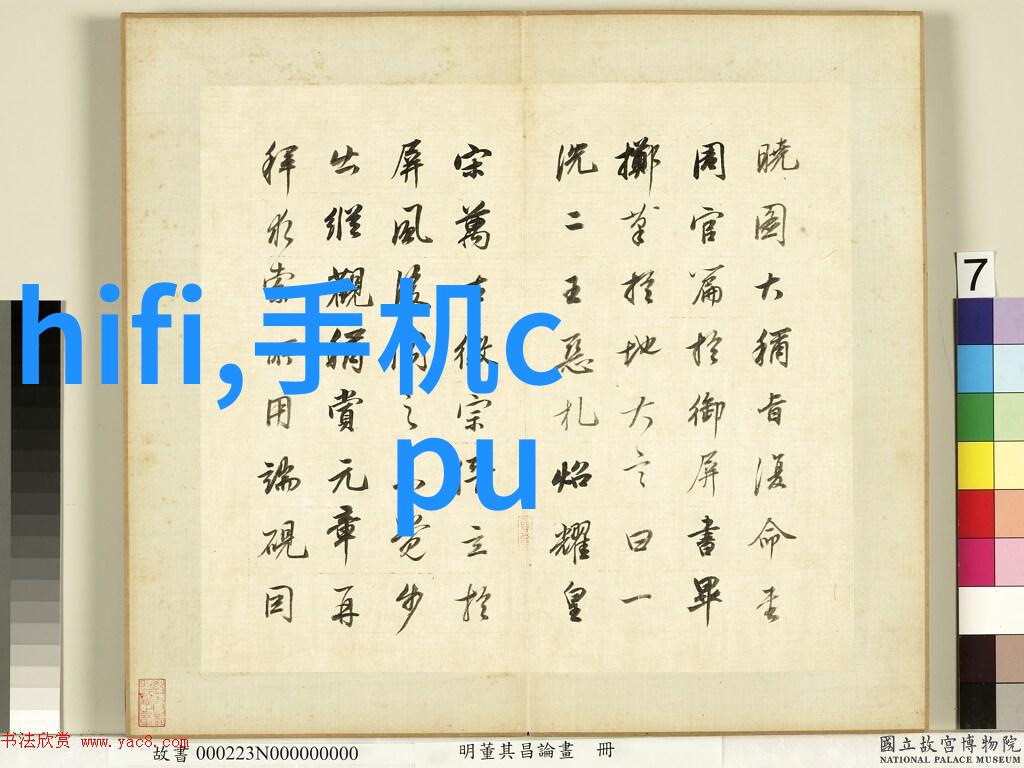 曉圖大稱旨復命書
周官篇於御屏書畢
擲筆於地大言曰一
洗二王惡札焰耀皇
宋萬古徽宗立於
屏風後之覺步
出縱觀稱賞元章再
拜求索用端硯因
hifi,手机c
pu
7
书法欣赏 www.yac8.com
故書 000223N000000000
明董其昌論畫 冊
國立故宮博物院
NATIONAL PALACE MUSEUM